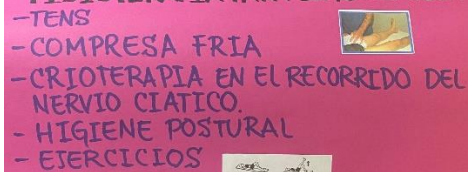 -TENS
-COMPRESA FRIA
-CRIOTERAPIA EN El RECORRIDO DEL
NERVIO CIATICO.
- HIGIENE POSTURAL
- EJERCICIOS